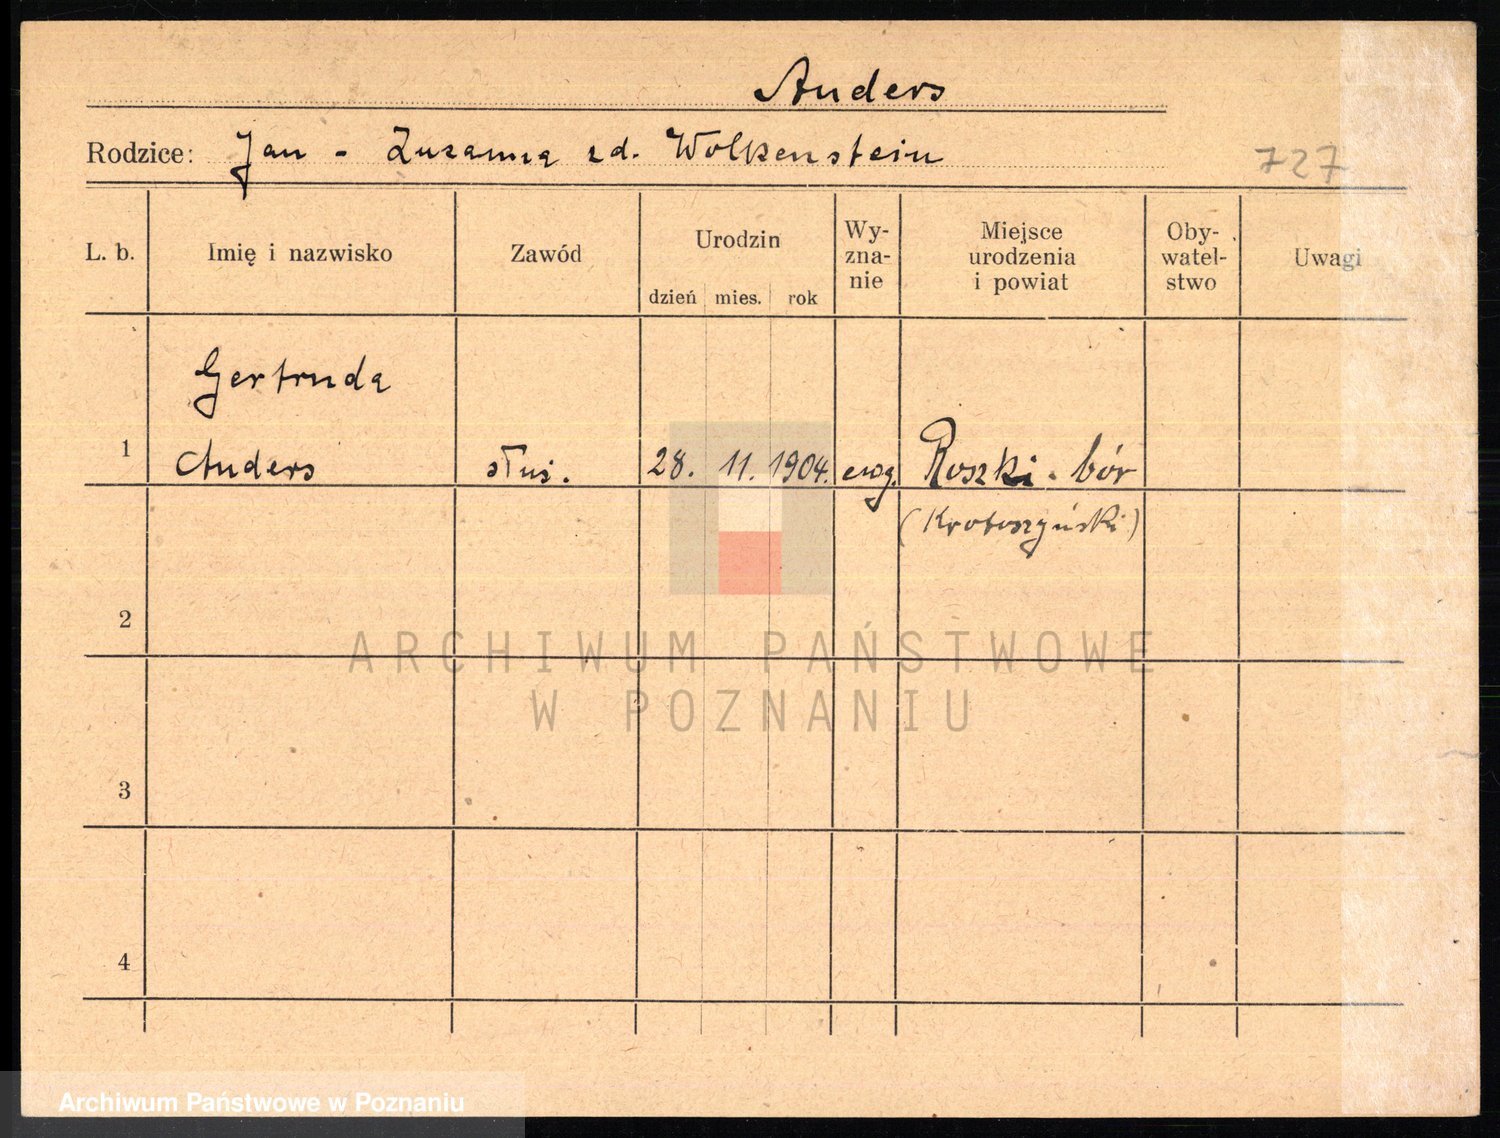 Anders
Rodzice: Jan - Zuzanna zd. Wolkenstein
727
L. b.
Imię i nazwisko
Zawód
Urodzin
dzień mies. rok
Wy-
zna-
nie
Miejsce
urodzenia
i powiat
Oby-
watel-
stwo
Uwagi
Gertruda
1 Anders służ. 28. 11. 1904. ewg. Roszki - bór
(Krotoszyński)
2
ARCHIWUM PAŃSTWOWE
W POZNANIU
3
4
Archiwum Państwowe w Poznaniu